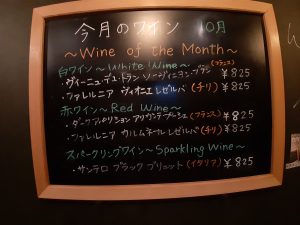 今月のワイン 10月
～Wine of the Month～
白ワイン～White Wine～
・ヴィーニュ・デュ・トラン ソーヴィニヨン・ブラン (フランス) ¥825
・ファレルニア ヴィオニエ レゼルバ (チリ) ¥825
赤ワイン～Red Wine～
アリカンテブーシェ (フランス) ¥825
・ファレルニア カルムネール レゼルバ (チリ) ¥825
スパークリングワイン～Sparkling Wine～
・サンテロ ブラック ブリュット (イタリア) ¥825